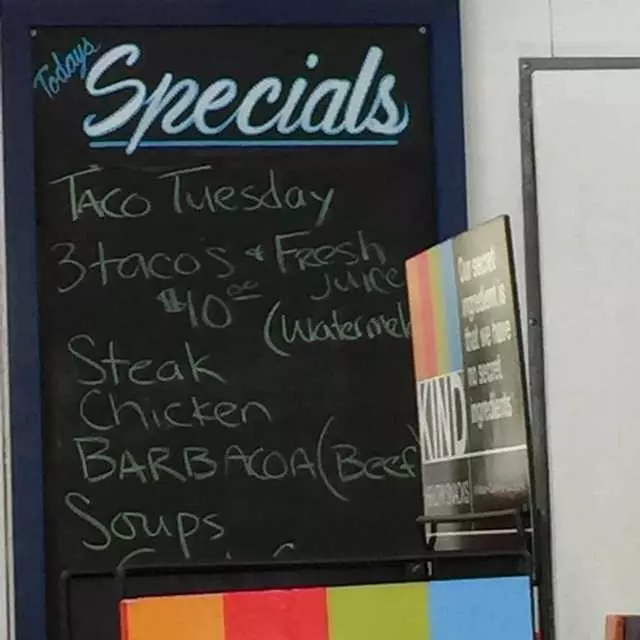 Todays
Specials
TACO Tuesday
3 taco's & Fresh
Juice
$10.00
(Watermel
Steak
Chicken
BARBACOA (Beef
Soups
Our secret
ingredient is
that we have
no secret
ingredients
KIND